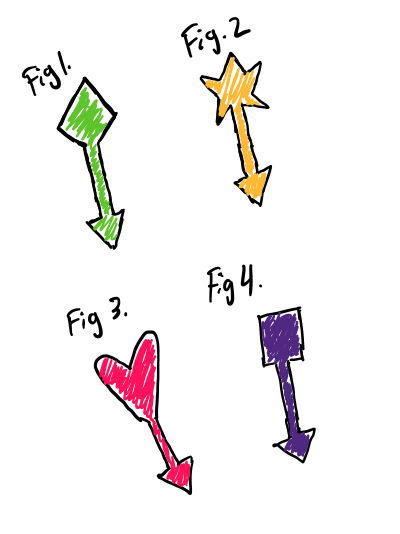 Fig 1.
Fig. 2
Fig 3.
Fig 4.